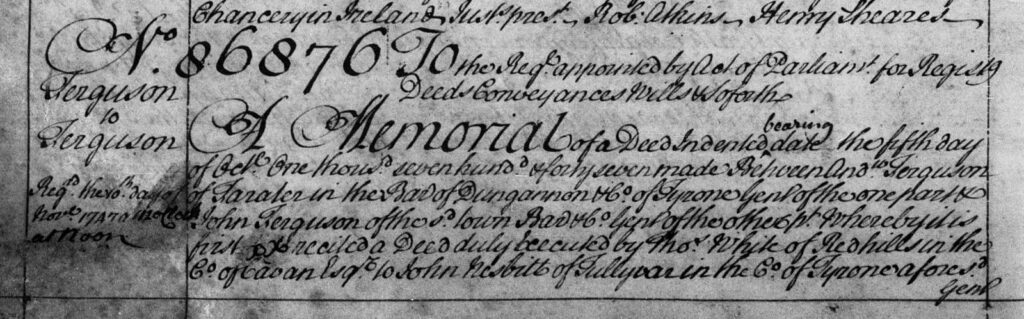 Chancery in Ireland Just: prest. Rob: Atkins Henry Sheares
No. 86876 To
the Regr. appointed by Act of Parliamt. for Registg
Deeds Conveyances Wills & So forth
Ferguson
to
Ferguson
Regd. the 10th. day of
Novr. 1747 at
at Noon
A Memorial of a Deed Indented bearing date the fifth day
of Octr. One thousd. seven hundd. & forty seven made Between Andw. Ferguson
of in the Bar of Dungannon & Co. of Tyrone Gent of the one part &
John Ferguson of the sd. town Bar & Co. Gent of the other pt. Whereby it is
first recited a Deed duly executed by Thos. White of Redhills in the
Co. of Cavan Esqr. to John Nesbitt of Tullyvar in the Co. of Tyrone aforesd.
Gent